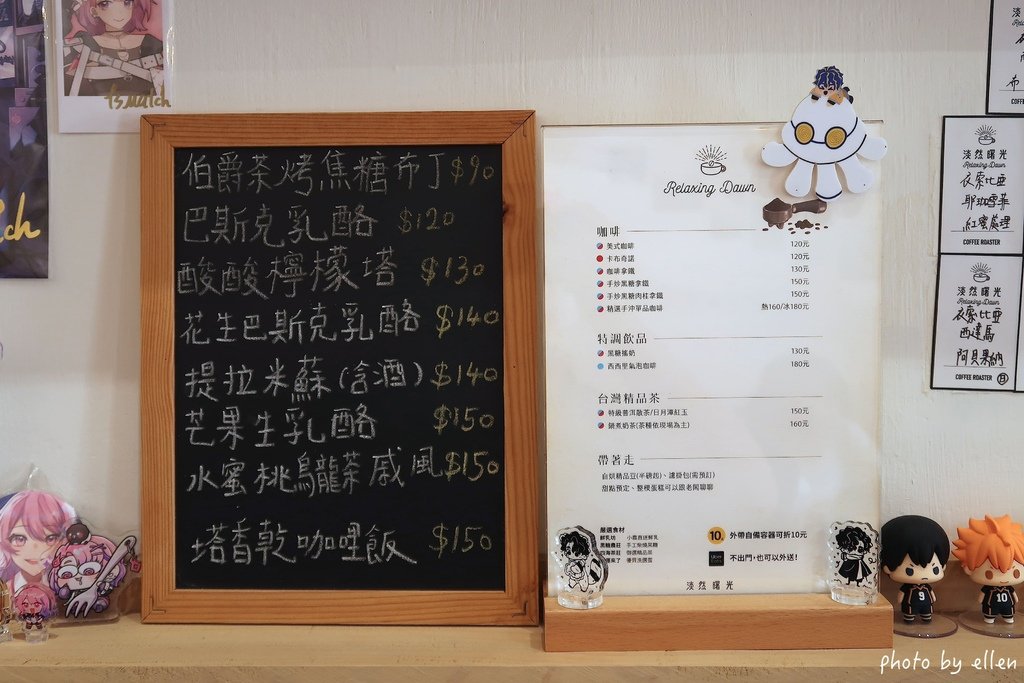 ts.Match
伯爵茶烤焦糖布丁 $90
巴斯克乳酪 $120
酸酸檸檬塔 $130
花生巴斯克乳酪 $140
提拉米蘇(含酒) $140
芒果生乳酪 $150
水蜜桃烏龍茶戚風 $150
塔香乾咖哩飯 $150
Relaxing Dawn
咖啡
美式咖啡 120元
卡布奇諾 120元
咖啡拿鐵 130元
手炒黑糖拿鐵 150元
手炒黑糖肉桂拿鐵 150元
精選手沖單品咖啡 熱160/冰180元
特調飲品
黑糖搖奶 130元
西西里氣泡咖啡 180元
台灣精品茶
特級普洱散茶/日月潭紅玉 150元
鍋煮奶茶(茶種依現場為主) 160元
帶著走
自烘精品豆(半磅起)、濾掛包(需預訂)
甜點預定、整模蛋糕可以跟老闆聊聊
嚴選食材
鮮乳坊 小農直送鮮乳
10元 外帶自備容器可折10元
不出門,也可以外送!
淡然曙光
淡然曙光
Relaxing Dawn
衣索比亞
耶加雪菲
紅蜜處理
COFFEE ROASTER
淡然曙光
Relaxing Dawn
衣索比亞
西達馬
阿貝果納
COFFEE ROASTER
9
10
photo by ellen